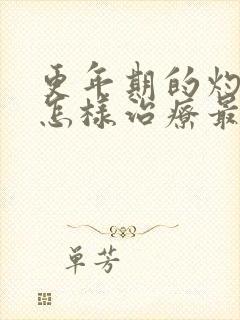 更年期的灼
怎樣治療最
單芳